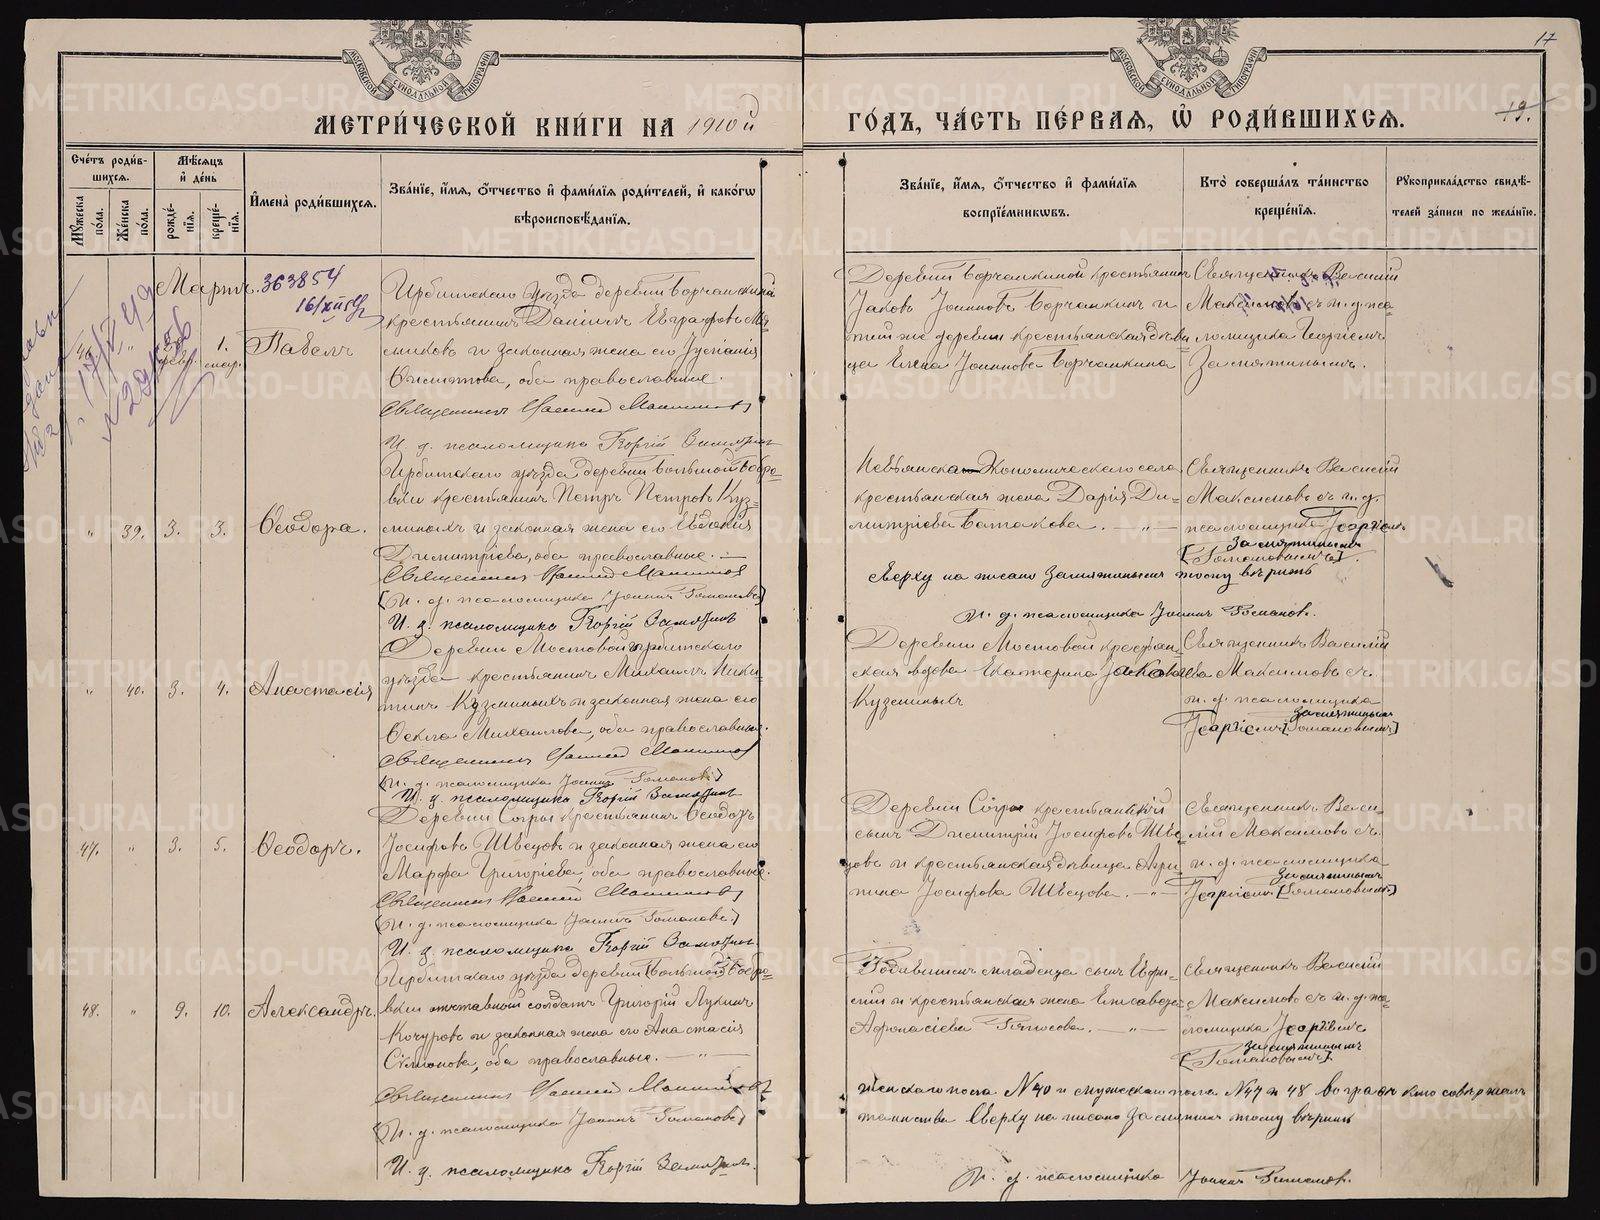 МЕТРИ́ЧЕСКОЙ КНИ́ГИ НА 1910 й
ГО́ДЪ, ЧА́СТЬ ПЕ́РВАѦ, Ѽ РОДИ́ВШИХСѦ.
17
19.
Счётъ роди́вшихсѧ.
Мꙋ́жеска по́ла.
Же́нска по́ла.
Мѣ́сѧцъ и҆ де́нь
рожде́нїѧ.
креще́нїѧ.
И҆мена̀ роди́вшихсѧ.
Зва́нїе, и҆́мѧ, ѻ҆́тчество и҆ фами́лїѧ роди́телей, и҆ како́гѡ
вѣроисповѣ́данїѧ.
Зва́нїе, и҆́мѧ, ѻ҆́тчество и҆ фами́лїѧ
воспрїе́мникѡвъ.
Кто̀ соверша́лъ та́инство
креще́нїѧ.
Рꙋкоприкла́дство свидѣ́телей за́писи по жела́нїю.
Мартъ.
363854
1.
мар.
Павелъ
Ирбитскаго уѣзда деревни Борчанкиной
крестьянинъ Даніилъ Евграфовъ
и законная жена его
оба православные.
Священникъ Василій Максимовъ
И. д. псаломщика Георгій Замятинъ
Деревни Борчанкиной крестьянинъ
Іаковъ Іоанновъ Борчанкинъ и
деревни крестьянская дѣви
ца Елена Іоаннова Борчанкина
Священникъ Василій
Максимовъ съ и. д. пса
ломщика Георгіемъ
Замятинымъ.
" 39. 3. 3. Ѳеодора.
Ирбитскаго уѣзда деревни Большой Бобро-
вки крестьянинъ Петръ Петровъ Куз-
миныхъ и законная жена его Евдокія
Димитріева, оба православные.
Священникъ Василій Максимовъ
[И. д. псаломщика Іоаннъ Романовъ]
И. д. псаломщика Георгій Замятинъ
Невьянско Экономическаго села
крестьянская жена Дарія Ди-
митріева Батакова. — " —
Священникъ Василій
Максимовъ съ и. д.
псаломщика Георгіемъ
Замятинымъ
[Романовымъ].
сверху написано Замятинымъ тому вѣрить
И. д. псаломщика Іоаннъ Романовъ.
" 40. 3. 4. Анастасія
Деревни Мостовой Ирбитскаго
уѣзда крестьянинъ Михаилъ Ники
тинъ Кузьминыхъ и законная жена его
Ѳекла Михаилова, оба православные.
Священникъ Василій Максимовъ
[И. д. псаломщика Іоаннъ Романовъ]
И. д. псаломщика Георгій Замятинъ
Деревни Мостовой крестьян-
ская вдова Екатерина Іаковлева
Кузьминыхъ
Священникъ Василій
Максимовъ съ
и. д. псаломщика
Замятинымъ
Георгіемъ [Романовымъ]
47. " 3. 5. Ѳеодоръ.
Деревни Согры крестьянинъ Ѳеодоръ
Іосифовъ Швецовъ и законная жена его
Марфа Григоріева, оба православные.
Священникъ Василій Максимовъ
[И. д. псаломщика Іоаннъ Романовъ]
И. д. псаломщика Георгій Замятинъ
Деревни Согры крестьянскій
сынъ Димитрій Іосифовъ Шве
цовъ и крестьянская дѣвица Агри
пина Іосифова Швецова. — " —
Священникъ Васи-
лій Максимовъ съ
и. д. псаломщика
Замятинымъ
Георгіемъ [Романовымъ]
48. " 9. 10. Александръ.
Ирбитскаго уѣзда деревни Большой Бобро-
вки отставной солдатъ Григорій Лукинъ
Кочуровъ и законная жена его Анастасія
Симонова, оба православные. — " —
Священникъ Василій Максимовъ
[И. д. псаломщика Іоаннъ Романовъ]
И. д. псаломщика Георгій Замятинъ.
младенца сынъ
и крестьянская жена Елисавета
Аѳонасіева — " —
Священникъ Василій
Максимовъ съ и. д. пса
ломщика Георгіемъ
Замятинымъ
[Романовымъ].
Женскаго пола №40 и мужескаго пола №47 и 48 въ графѣ кто совершалъ
таинства сверху написано Замятинъ тому вѣрить
И. д. псаломщика Іоаннъ Романовъ.